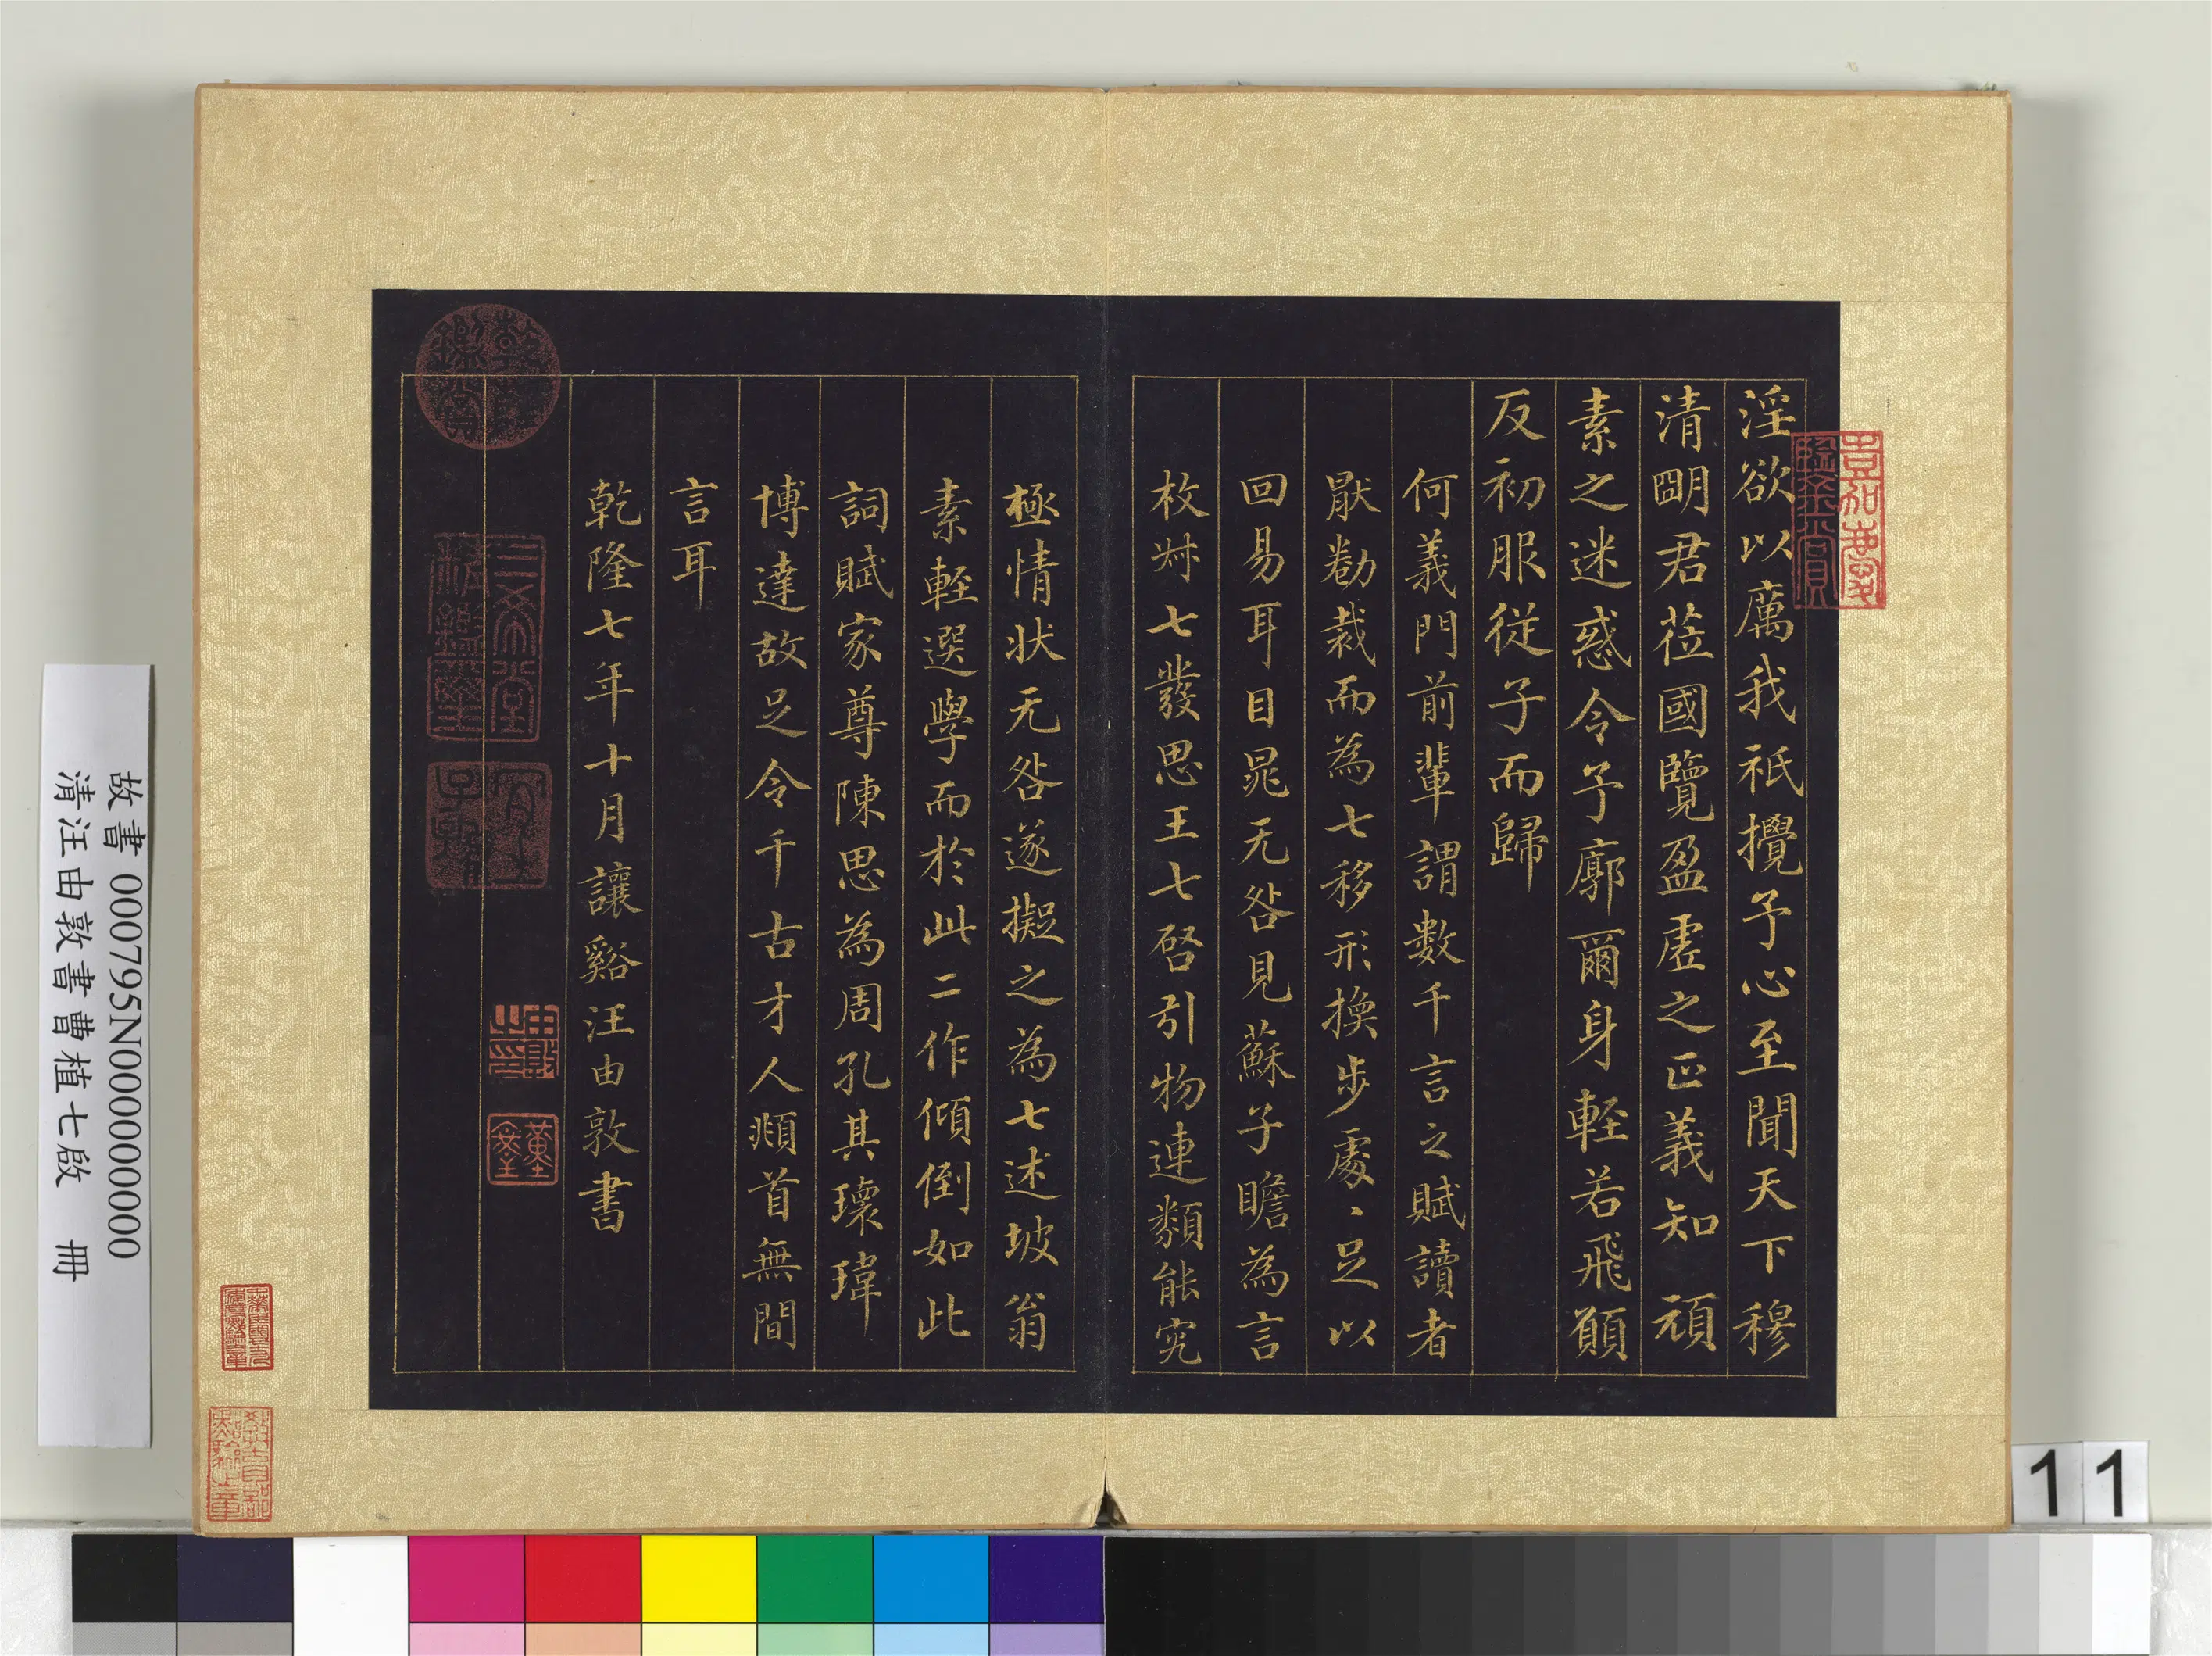 淫欲以厲我祇攪予心至聞天下穆
清朙君莅國覽盈虗之正義知頑
素之迷惑令予廓爾身輕若飛願
反初服從子而歸
何義門前輩謂數千言之賦讀者
厭勌裁而為七移形換步處〻足以
回易耳目晁无咎見蘇子瞻為言
枚叔七發思王七啓引物連類能究
極情狀无咎遂擬之為七述坡翁
素輕選學而於此二作傾倒如此
詞賦家尊陳思為周孔其瓌瑋
博達故足令千古才人頫首無間
言耳
乾隆七年十月讓谿汪由敦書
嘉慶鑒賞
乾隆鑑賞
三希堂精鑑璽
宜子孫
由敦之印
故書 000795N000000000
清汪由敦書曹植七啟 冊
11